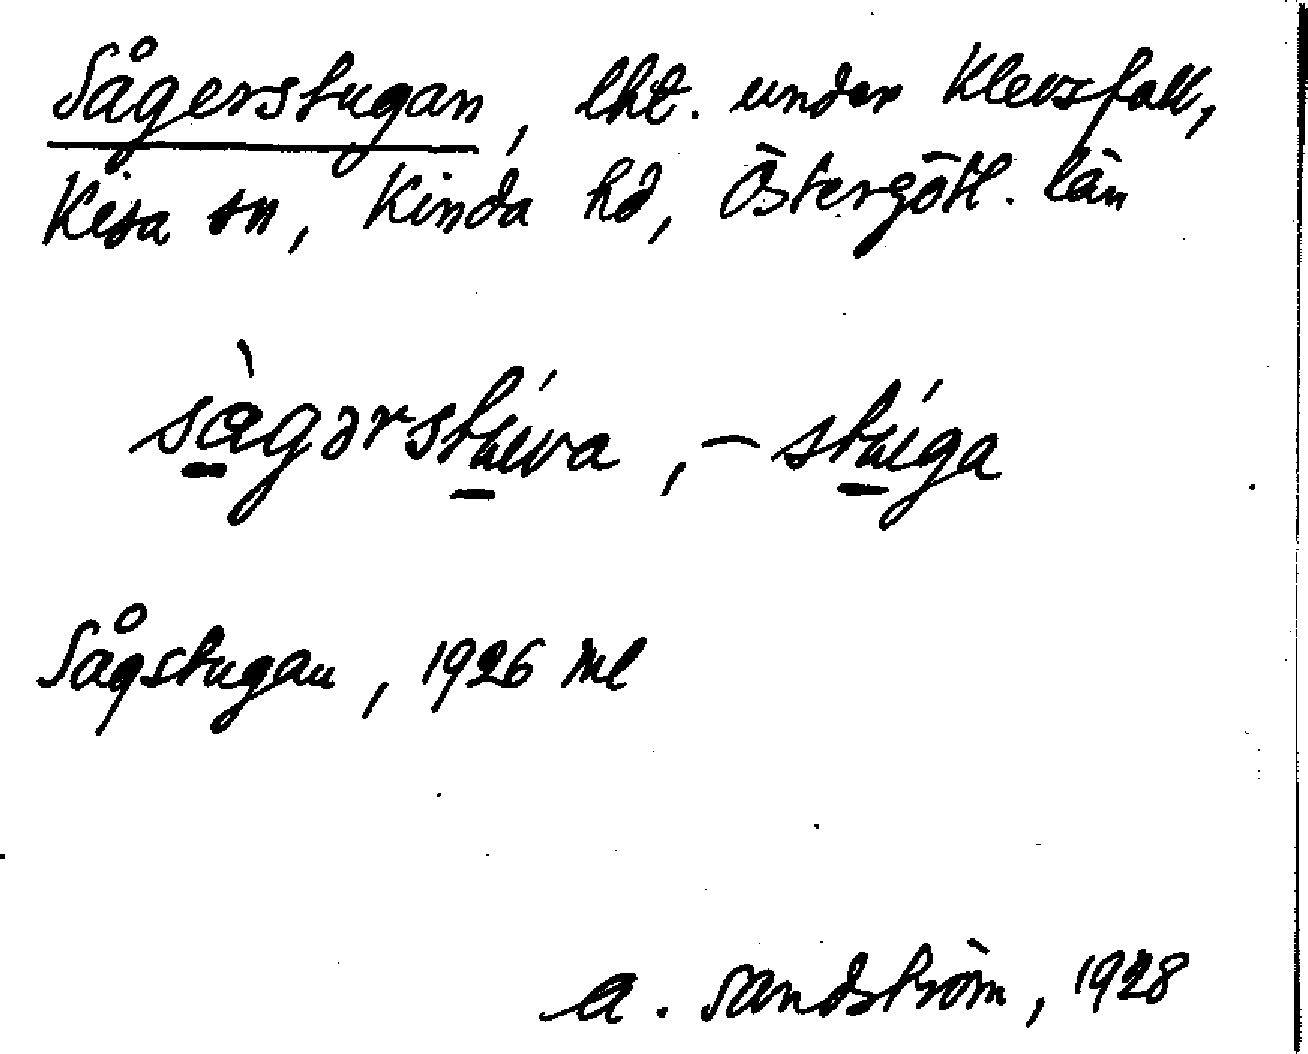 Sågerstugan, lht. under Klevsfall,
Kisa sn, Kinda hd, Östergötl. län
sàgərstúva, -stúga
Sågstugan, 1926 ml
A. Sandström, 1928